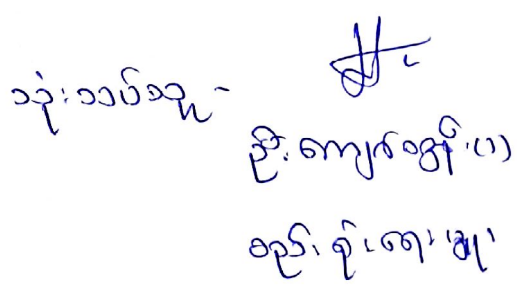 သုံးသပ်သူ -
ဦးကျော်ဝန်း(၁)
စည်းရုံးရေးမှူး